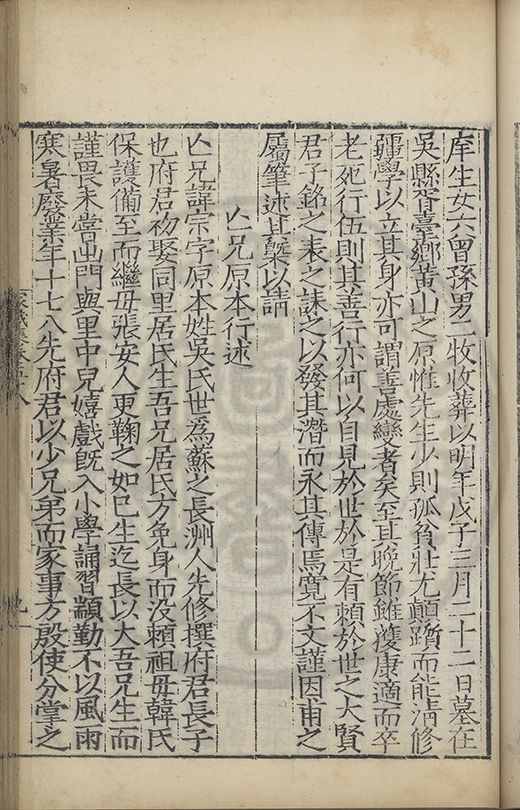 庠生女六曾孫男二牧收葬以明年戊子三月二十二日墓在
吳縣胥臺鄉黃山之原惟先生少則孤貧壯尤顛躓而能清修
彊學以立其身亦可謂善處變者矣至其晚節雖獲康適而卒
老死行伍則其善行亦何以自見於世於是有賴於世之大賢
君子銘之表之誄之以發其潛而永其傳焉寬不文謹因甫之
屬筆述其槩以請
亾兄原本行述
亾兄諱宗字原本姓吳氏世爲蘇之長洲人先修撰府君長子
也府君初娶同里居氏生吾兄居氏方免身而没頼祖母韓氏
保護備至而繼母張安人更鞠之如已生迄長以大吾兄生而
謹畏未嘗出門與里中兒嬉戲旣入小學誦習顓勤不以風雨
寒暑廢業年十七八先府君以少兄弟而家事方殷使分掌之
家藏集卷五十八
九